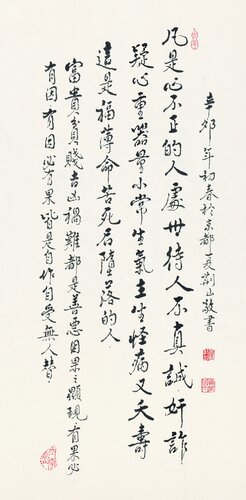 凡是心不正的人處世待人不真誠奸詐
疑心重器量小常生氣主生怪病又夭壽
這是福薄命苦死后墮落的人
富貴貧賤吉凶禍難都是善惡因果之顯現有果必
有因有因必有果皆是自作自受無人替
辛卯年初春於京都夏荊山敬書